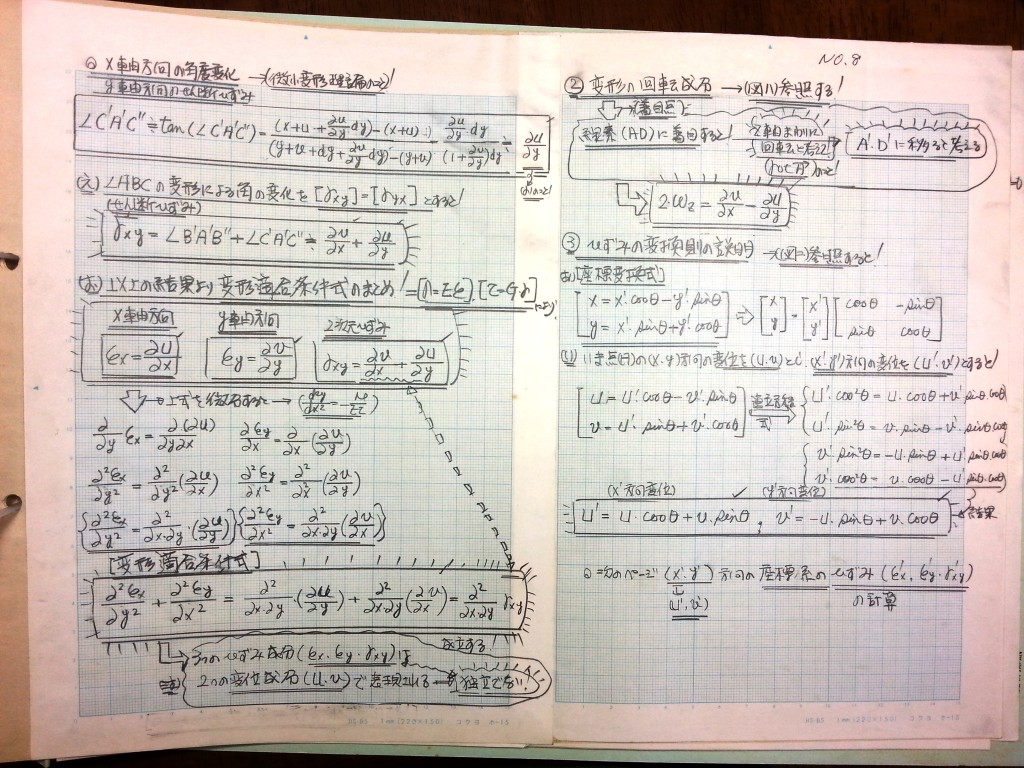 ◎ X軸方向の角度変化 →(微小変形理論のこと!
y軸方向のせん断ひずみ
∠C'A'C" ≒ tan(∠C'A'C") = ((x+u+∂u/∂y dy)-(x+u)) / ((y+v+dy+∂v/∂y dy)-(y+v)) = (∂u/∂y dy) / ((1+∂v/∂y)dy) ≒ ∂u/∂y
(え) ∠ABCの変形による角の変化を[γxy]=[γyx]とすると!
(せん断ひずみ)
γxy = ∠B'A'B"+∠C'A'C" ≒ ∂v/∂x + ∂u/∂y
(お) 以上の結果より変形適合条件式のまとめ!
X軸方向 y軸方向 2次元ひずみ
εx=∂u/∂x εy=∂v/∂y γxy=∂v/∂x+∂u/∂y
上式を微分すると→
∂/∂y εx = ∂(∂u)/∂y∂x ∂εy/∂x = ∂/∂x(∂v/∂y)
∂²εx/∂y² = ∂²/∂y²(∂u/∂x) ∂²εy/∂x² = ∂²/∂x²(∂v/∂y)
{∂²εx/∂y² = ∂²/∂x·∂y·(∂u/∂y)} {∂²εy/∂x² = ∂²/∂x·∂y(∂v/∂x)}
[変形適合条件式]
∂²εx/∂y² + ∂²εy/∂x² = ∂²/∂x·∂y·(∂u/∂y) + ∂²/∂x·∂y(∂v/∂x) = ∂²/∂x·∂y γxy
成立する!
3つのひずみ成分(εx.εy.γxy)は
2つの変位成分(u.v)で表現される→独立でない!
NO.8
② 変形の回転成分 →(図1)参照する!
(着目点)
線素(AD)に着目すると! Z軸まわりに回転と考える! A'.D'に移ると考える
(rot A)のこと
2·ωz = ∂v/∂x - ∂u/∂y
③ ひずみの変換則の説明 →(図2)参照すると!
(あ)[座標変換式]
[x = x'·cosθ-y'·sinθ
y = x'·sinθ+y'·cosθ] ⇨ [x y] = [x' y'] [cosθ -sinθ
sinθ cosθ]
(い) いま点(A)の(x.y)方向の変位を(u.v)とし.(x'.y')方向の変位を(u'.v')とすると!
[u = u'·cosθ-v'·sinθ
v = u'·sinθ+v'·cosθ] 連立方程式
u'·cos²θ = u·cosθ+v'·sinθ·cosθ
u'·sin²θ = v·sinθ-v'·sinθ·cosθ
v'·sin²θ = -u·sinθ+u'·sinθ·cosθ
v'·cos²θ = v·cosθ-u'·sinθ·cosθ
(x'方向変位) (y'方向変位)
u' = u·cosθ+v·sinθ , v' = -u·sinθ+v·cosθ ←結果
◎ 次のページ (x'.y')方向の座標系のひずみ(ε'x.ε'y.γ'xy)
(u'.v') の計算
HS 85 1mm(222×150) コクヨ ホ-18
HS 85 1mm(222×150) コクヨ ホ-18